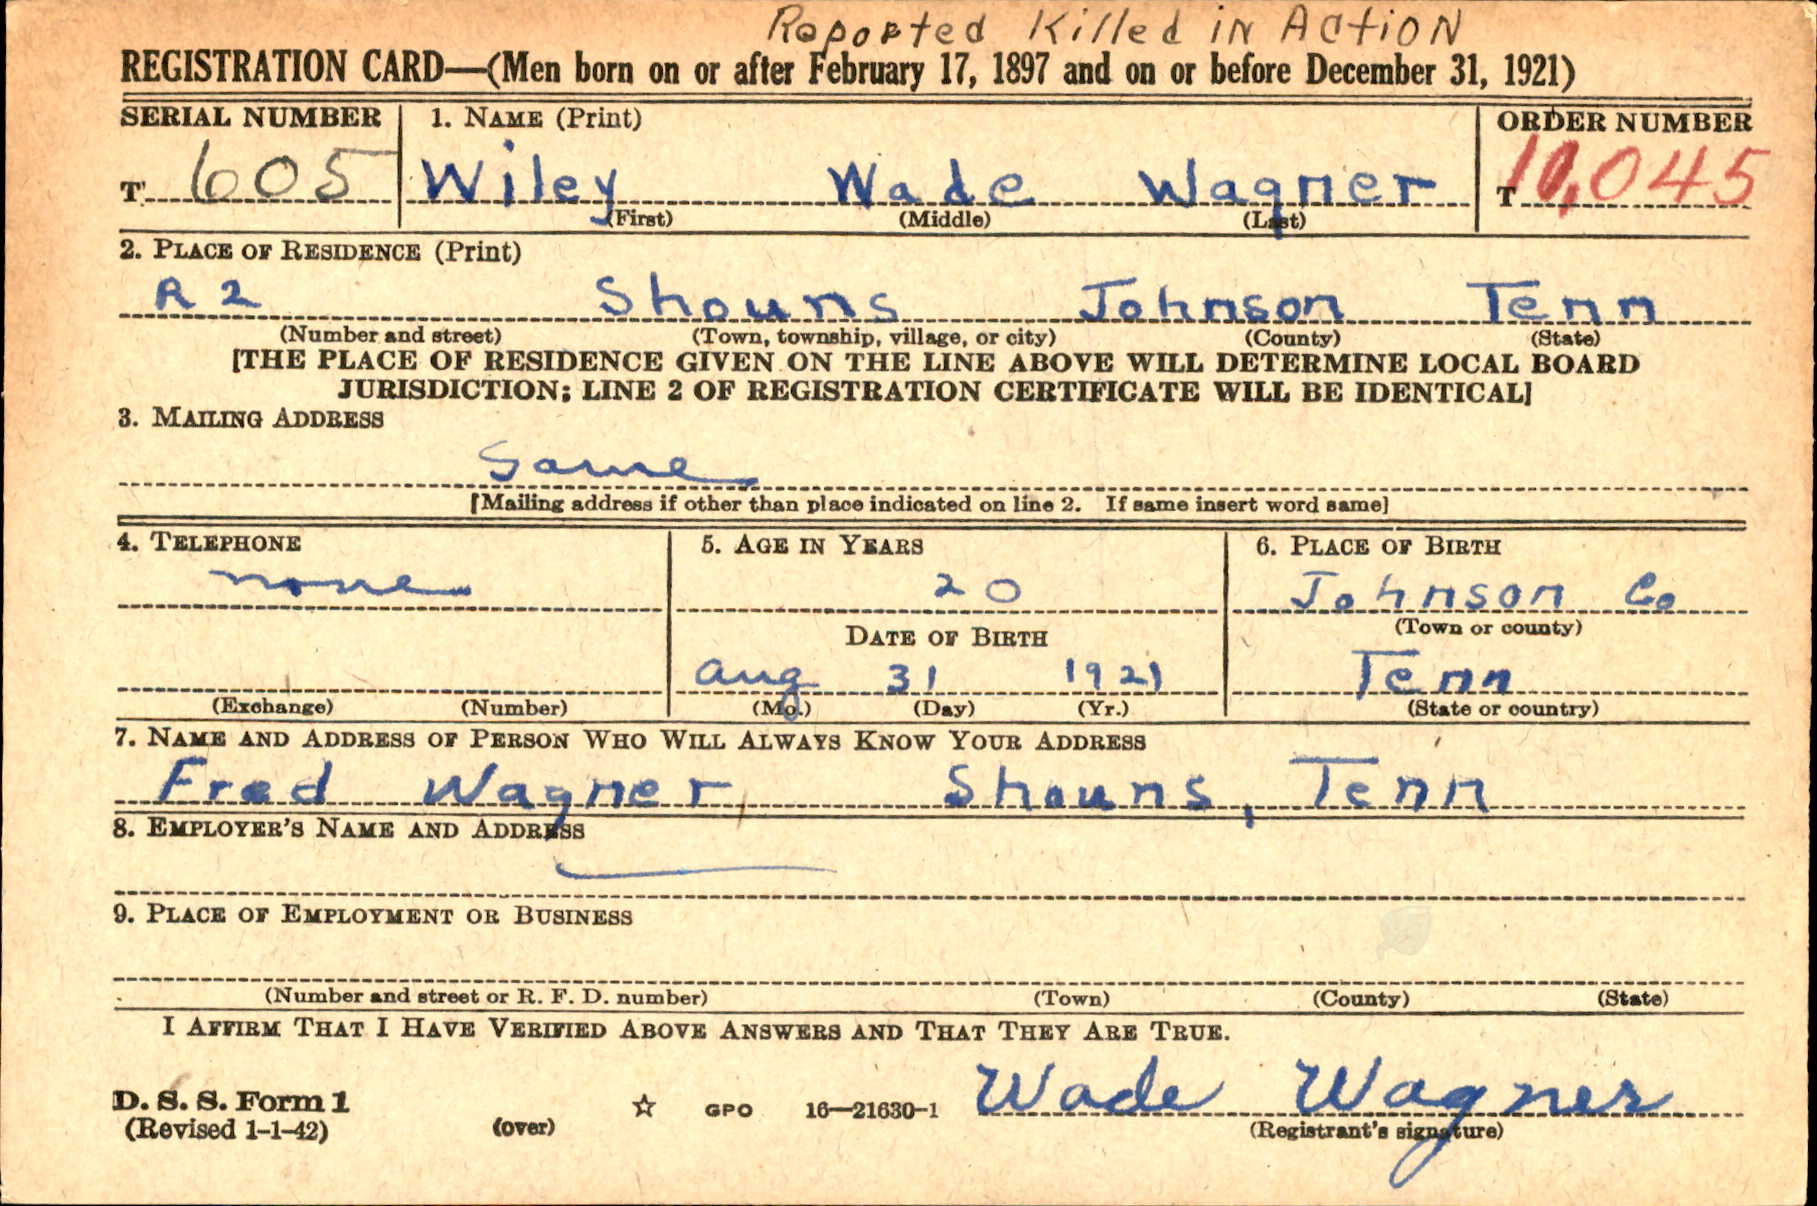 Reported Killed in Action
REGISTRATION CARD—(Men born on or after February 17, 1897 and on or before December 31, 1921)
SERIAL NUMBER 1. NAME (Print) ORDER NUMBER
T 605 Wiley Wade Wagner T 10,045
(First) (Middle) (Last)
2. PLACE OF RESIDENCE (Print)
R 2 Shouns Johnson Tenn
(Number and street) (Town, township, village, or city) (County) (State)
[THE PLACE OF RESIDENCE GIVEN ON THE LINE ABOVE WILL DETERMINE LOCAL BOARD
JURISDICTION; LINE 2 OF REGISTRATION CERTIFICATE WILL BE IDENTICAL]
3. MAILING ADDRESS
Same
[Mailing address if other than place indicated on line 2. If same insert word same]
4. TELEPHONE 5. AGE IN YEARS 6. PLACE OF BIRTH
none 20 Johnson Co
(Town or county)
DATE OF BIRTH
Aug 31 1921 Tenn
(Exchange) (Number) (Mo.) (Day) (Yr.) (State or country)
7. NAME AND ADDRESS OF PERSON WHO WILL ALWAYS KNOW YOUR ADDRESS
Fred Wagner, Shouns, Tenn
8. EMPLOYER'S NAME AND ADDRESS
9. PLACE OF EMPLOYMENT OR BUSINESS
(Number and street or R. F. D. number) (Town) (County) (State)
I AFFIRM THAT I HAVE VERIFIED ABOVE ANSWERS AND THAT THEY ARE TRUE.
D. S. S. Form 1 Wade Wagner
(Revised 1-1-42) (over) ☆ GPO 16—21630-1 (Registrant's signature)